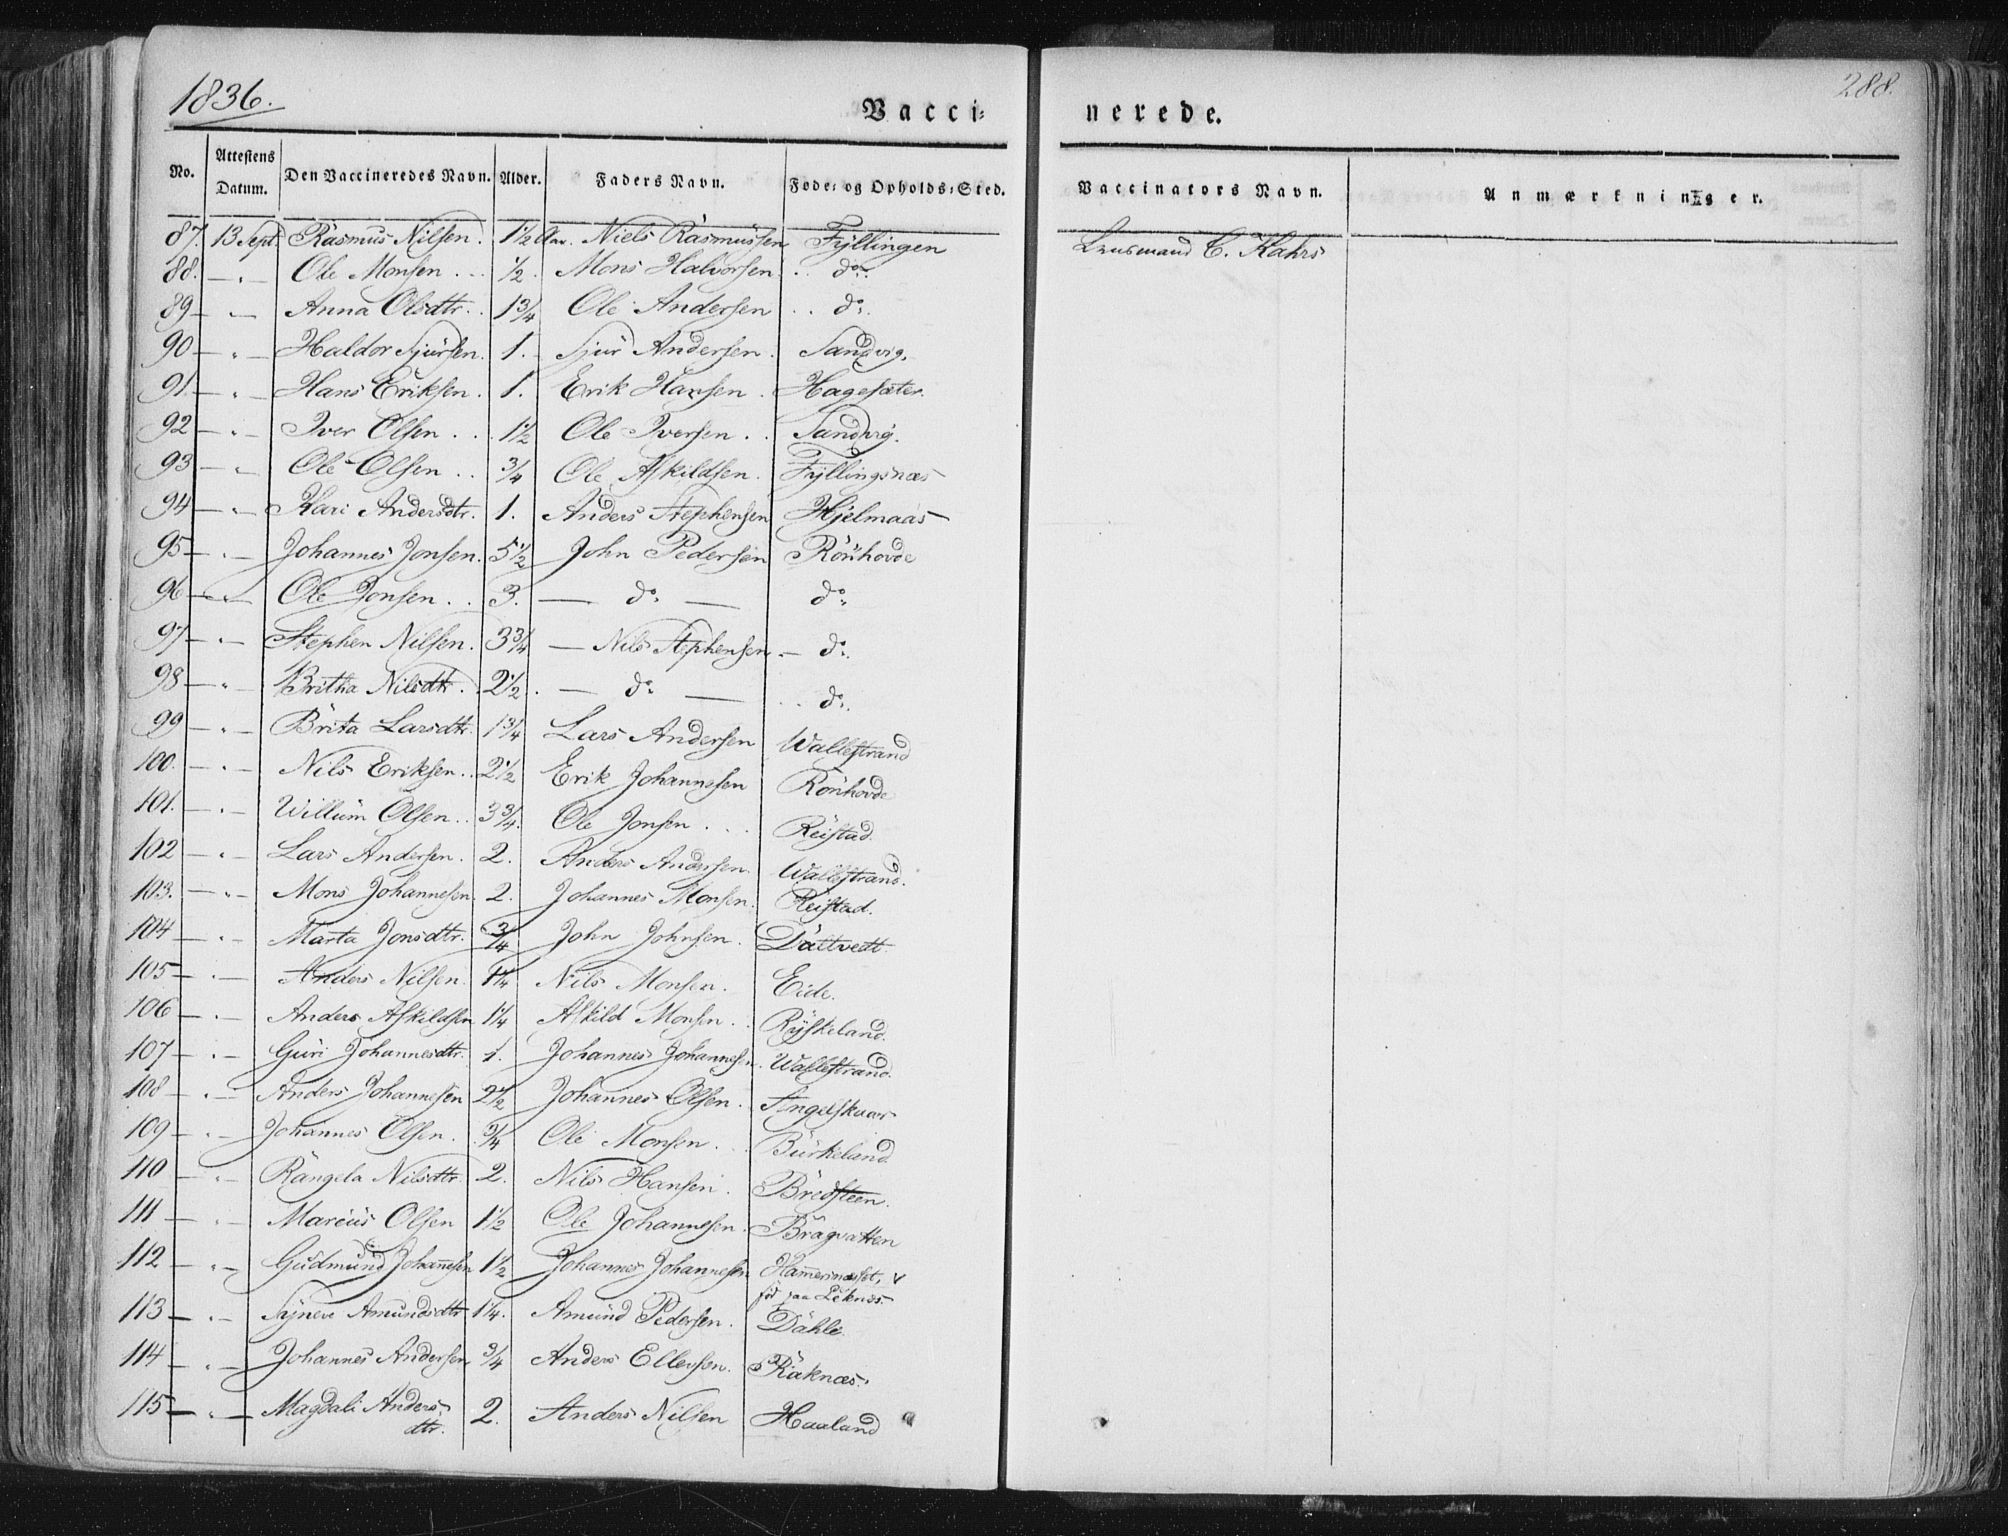 1836.
288.
Vacci=
nerede.
No. Attestens Datum. Den Vaccineredes Navn. Alder. Faders Navn. Føde= og Opholds=Sted. Vaccinators Navn. Anmærkninger.
87. 13 Sept. Rasmus Nilsen. 1½ Aar. Niels Rasmussen Fyllingen Lensmand C. Kahrs
88. — " — Ole Monsen . . ½. Mons Halvorsen . . do.
89 — " — Anna Olsdtr. . 1¾ Ole Andersen . . do.
90 — " — Haldor Sjursen. 1. Sjur Andersen. Sandvig.
91. — " — Hans Eriksen. 1. Erik Hansen. Hagesæter.
92 — " — Iver Olsen . . 1½ Ole Iversen . . Sandvig.
93 — " — Ole Olsen . . ¾ Ole Askildsen. Fyllingsnæs
94 — " — Kari Andersdtr. 1. Anders Stephensen Hjelmaas
95 — " — Johannes Jonsen. 5½ John Pedersen Rönhovde
96 — " — Ole Jonsen . . 3. — do — do
97 — " — Stephen Nilsen. 3¾ — Nils Stephensen — do.
98 — " — Britha Nilsdtr. . 2½. — do — . . do.
99 — " — Brita Larsdtr. 1¾ Lars Andersen Wallestrand
100. — " — Nils Eriksen . . 2½ Erik Johannesen Rönhovde
101. — " — Willum Olsen . . 3¾. Ole Jonsen . . . Reistad.
102 — " — Lars Andersen. 2. Anders Andersen. Wallestrand.
103. — " — Mons Johannesen. 2. Johannes Monsen. Reistad.
104 — " — Marta Jonsdtr. ¾ John Johnsen. Dältvedt
105 — " — Anders Nilsen. 1¼ Nils Monsen. Eide.
106 — " — Anders Askildsen 1¼ Askild Monsen . . Ryskeland.
107 — " — Guri Johannesdtr. 1. Johannes Johannesen. Wallestrand.
108 — " — Anders Johannesen 2½ Johannes Olsen. Angelskaar
109 — " — Johannes Olsen. ¾ Ole Monsen. . . Burkeland
110 — " — Rangela Nilsdtr. 2. Nils Hansen. Bredsteen.
111 — " — Marcus Olsen 1½ Ole Johannesen. Bragvatten
112 — " — Gudmund Johannesen 1½ Johannes Johannesen Hammersnæsset, v
föd paa Leknes.
113 — " — Synneve Amundsdtr 1¼. Amund Pedersen. Dahle
114 — " — Johannes Andersen ¾ Anders Ellersen. Räknæs.
115 — " — Magdali Anders= 2. Anders Nilsen Haaland
dtr.